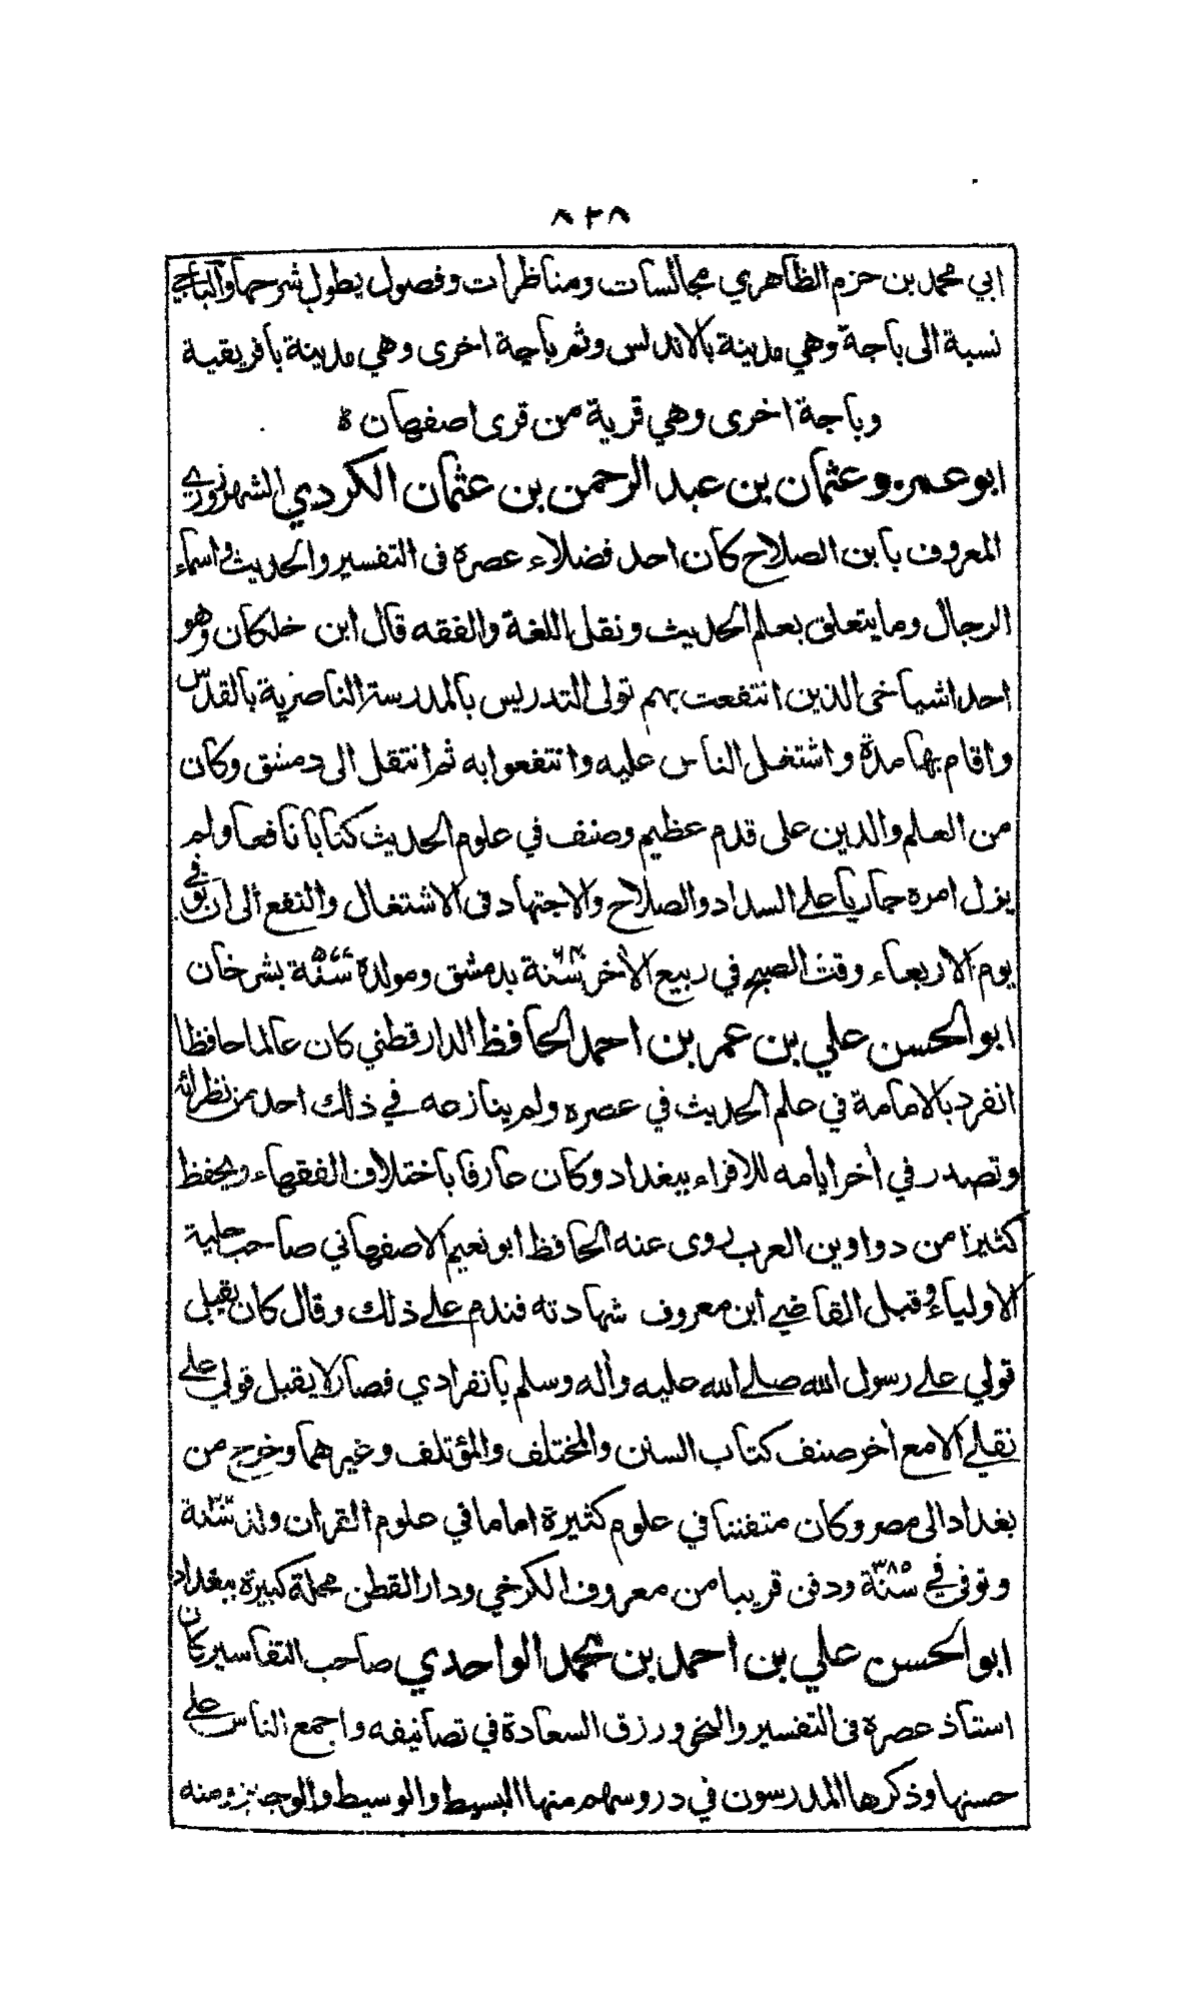 ٨٢٨
ابي محمد بن حزم الظاهري مجالسات ومناظرات وفصول يطول شرحها والباجي
نسبة الى باجة وهي مدينة بالاندلس وثم باجة اخرى وهي مدينة بافريقية
وباجة اخرى وهي قرية من قرى اصفهان
ابو عمرو عثمان بن عبد الرحمن بن عثمان الكردي الشهرزوري
المعروف بابن الصلاح كان احد فضلاء عصره فى التفسير والحديث واسماء
الرجال وما يتعلق بعلم الحديث ونقل اللغة والفقه قال ابن خلكان وهو
احد اشياخى الذين انتفعت بهم تولى التدريس بالمدرسة الناصرية بالقدس
واقام بها مدة واشتغل الناس عليه وانتفعوا به ثم انتقل الى دمشق وكان
من العلم والدين على قدم عظيم وصنف في علوم الحديث كتابا نافعا ولم
يزل امره جاريا على السداد والصلاح والاجتهاد فى الاشتغال والنفع الى ان توفي
يوم الاربعاء وقت الصبح في ربيع الأخر سنة بدمشق ومولده سنة ٥٧٧ بشرخان
ابو الحسن علي بن عمر بن احمد الحافظ الدارقطني كان عالما حافظا
انفرد بالامامة في علم الحديث في عصره ولم ينازعه في ذلك احد من نظرائه
وتصدر في أخر ايامه للاقراء ببغداد وكان عارفا باختلاف الفقهاء ويحفظ
كثيرا من دواوين العرب روى عنه الحافظ ابو نعيم الاصفهاني صاحب حلية
الاولياء وقبل القاضي ابن معروف شهادته فندم على ذلك وقال كان يقبل
قولي على رسول الله صلى الله عليه وأله وسلم بانفرادي فصار لا يقبل قولي على
نقلي الا مع أخر صنف كتاب السنن والمختلف والمؤتلف وغيرهما وخرج من
بغداد الى مصر وكان متفننا في علوم كثيرة اماما في علوم القران ولد سنة
وتوفي في سنة ٣٨٥ ودفن قريبا من معروف الكرخي ودار القطن محلة كبيرة ببغداد
ابو الحسن علي بن احمد بن محمد الواحدي صاحب التفاسير كان
استاذ عصره فى التفسير والنحو ورزق السعادة في تصانيفه واجمع الناس على
حسنها وذكرها المدرسون في دروسهم منها البسيط والوسيط والوجيز ومنه